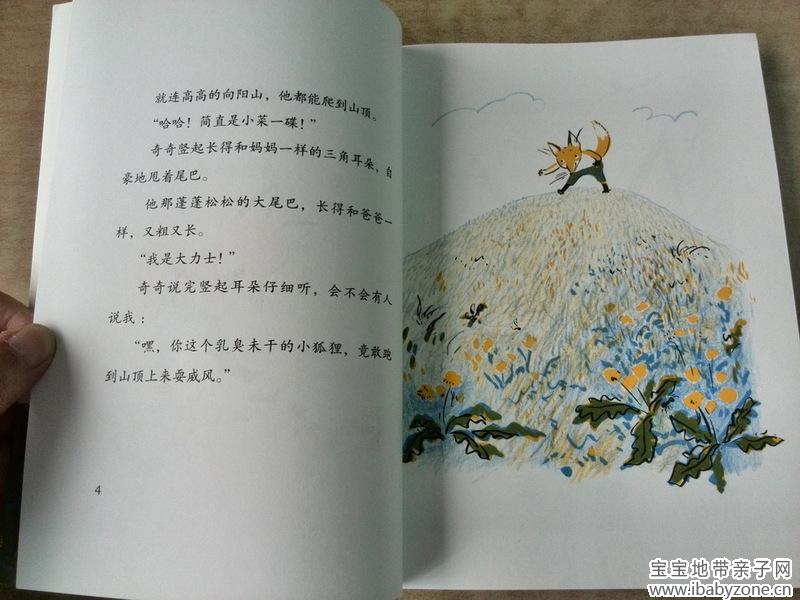 就连高高的向阳山，他都能爬到山顶。
“哈哈！简直是小菜一碟！”
奇奇竖起长得和妈妈一样的三角耳朵，自
豪地甩着尾巴。
他那蓬蓬松松的大尾巴，长得和爸爸一
样，又粗又长。
“我是大力士！”
奇奇说完竖起耳朵仔细听，会不会有人
说我：
“嘿，你这个乳臭未干的小狐狸，竟敢跑
到山顶上来耍威风。”
4
宝宝地带亲子网
www.ibabyzone.cn